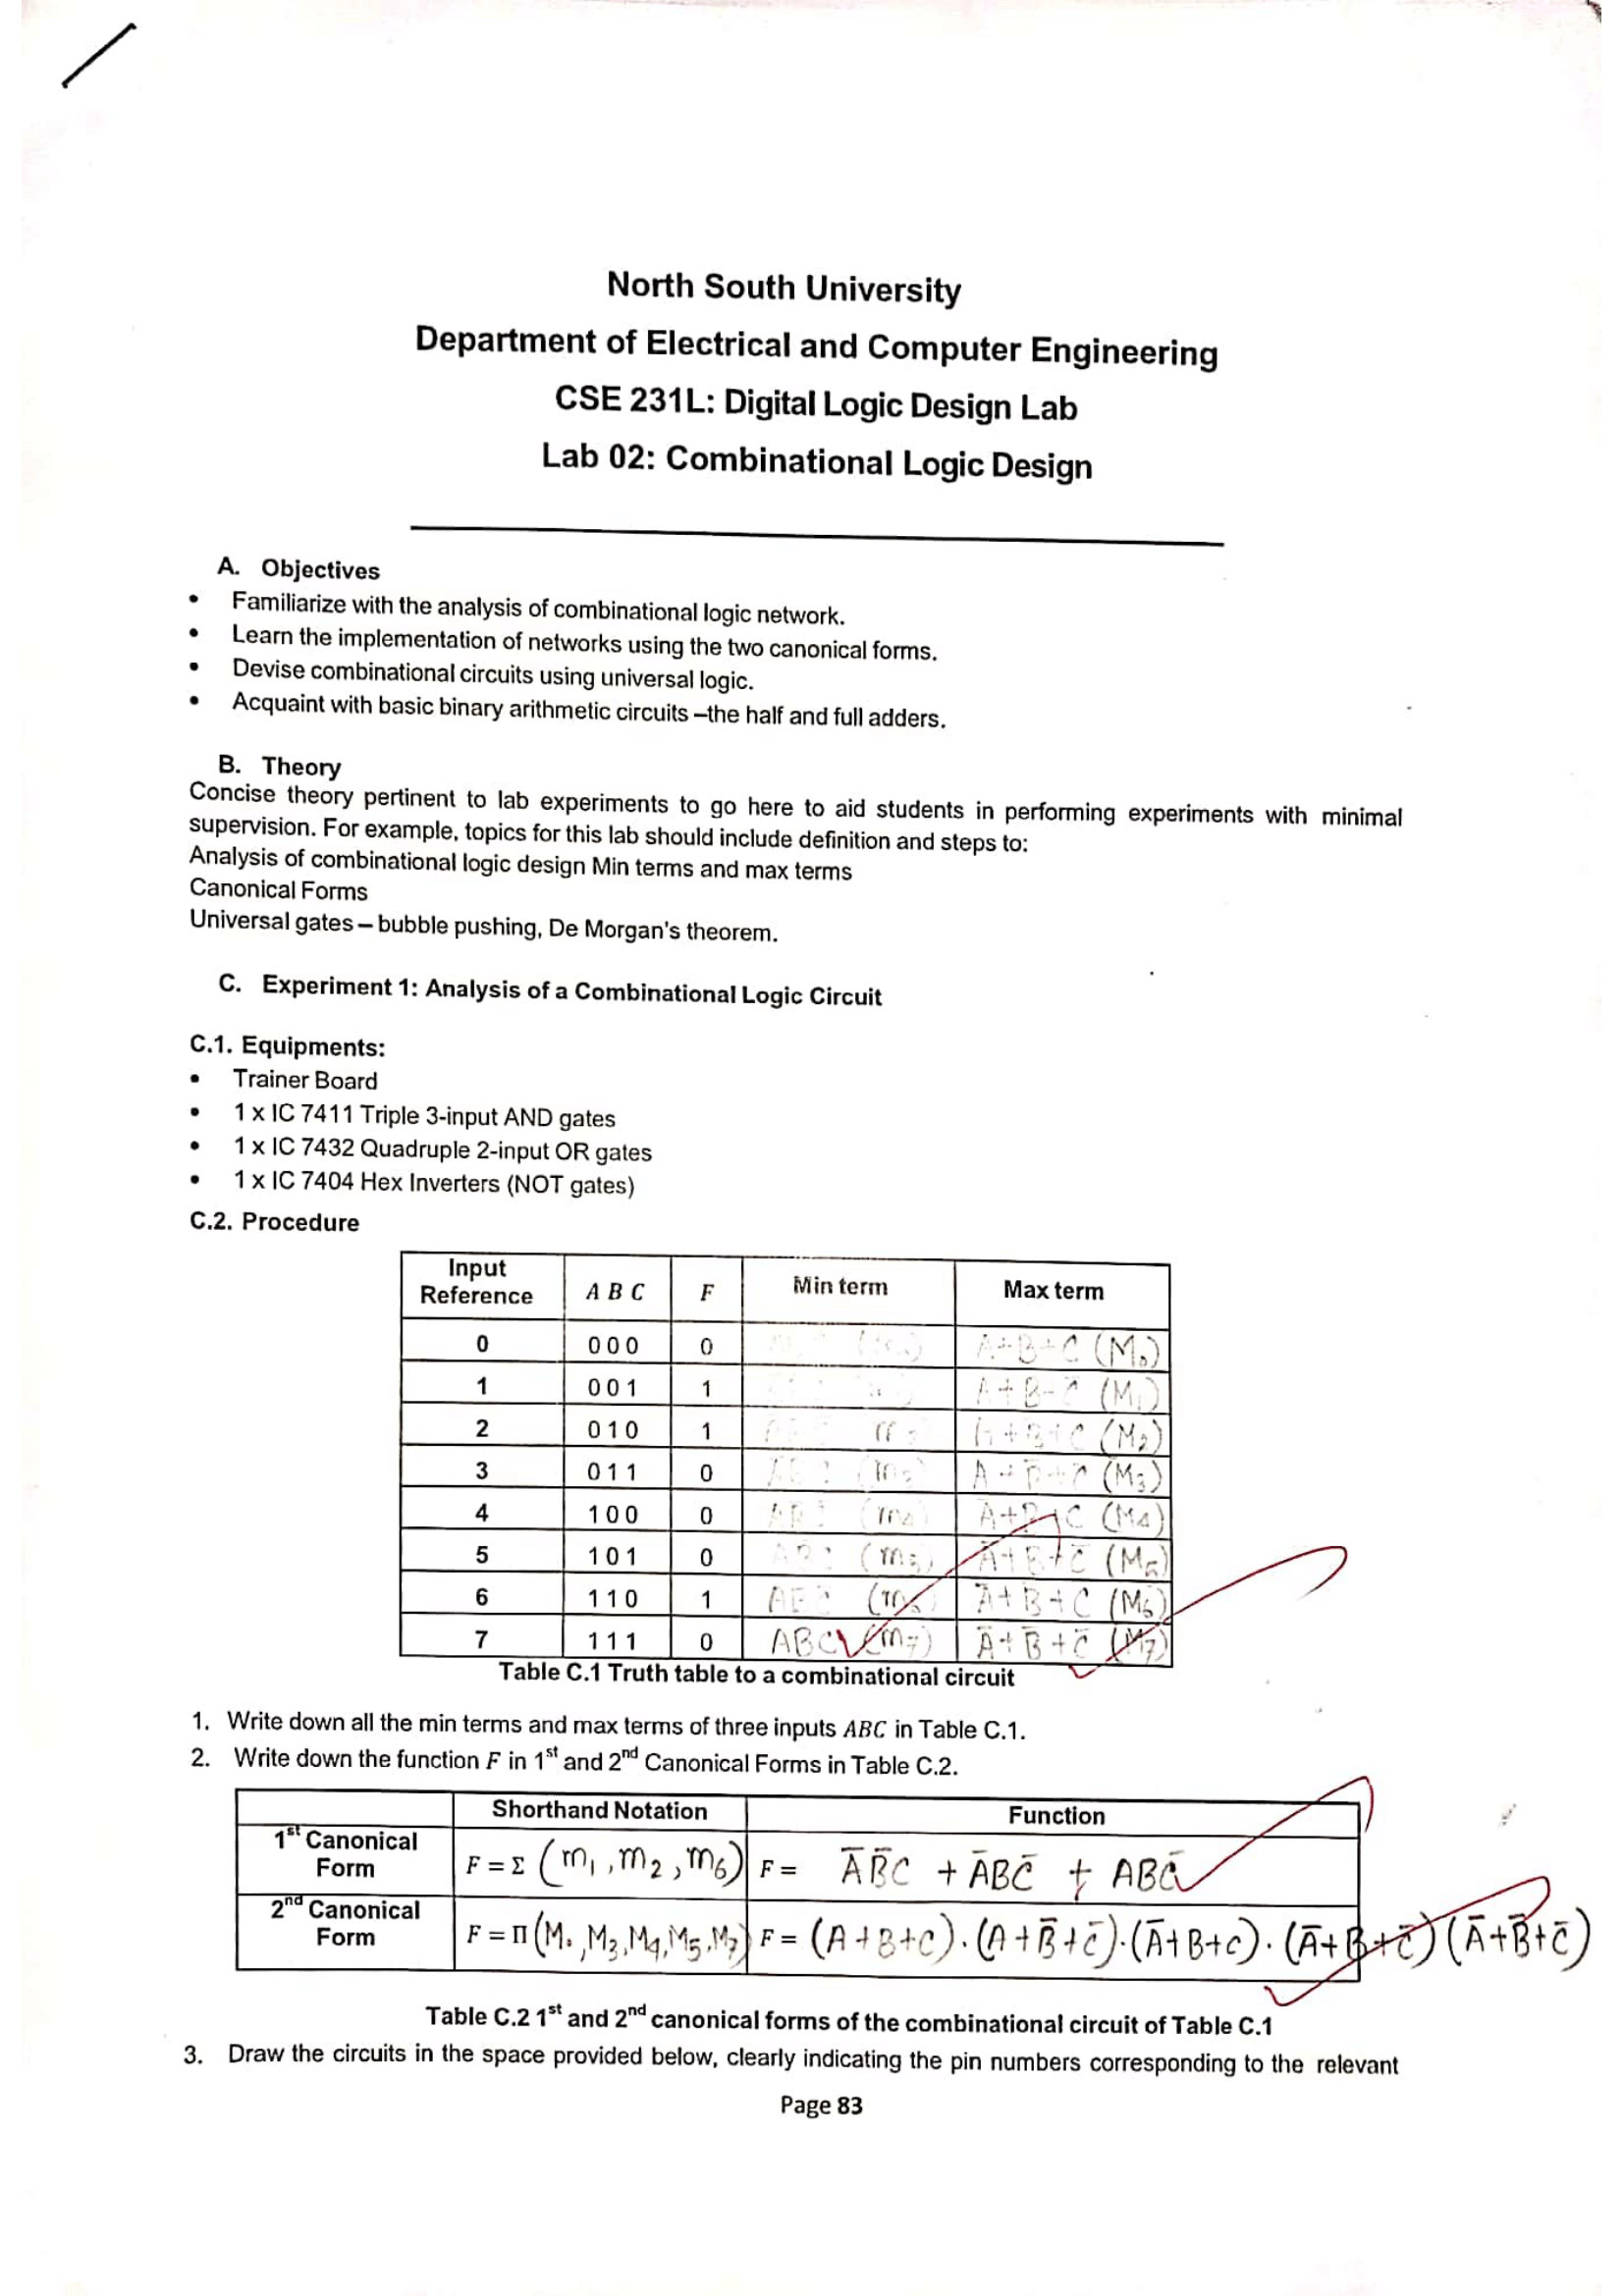 North South University
Department of Electrical and Computer Engineering
CSE 231L: Digital Logic Design Lab
Lab 02: Combinational Logic Design
A. Objectives
• Familiarize with the analysis of combinational logic network.
• Learn the implementation of networks using the two canonical forms.
• Devise combinational circuits using universal logic.
• Acquaint with basic binary arithmetic circuits –the half and full adders.
B. Theory
Concise theory pertinent to lab experiments to go here to aid students in performing experiments with minimal
supervision. For example, topics for this lab should include definition and steps to:
Analysis of combinational logic design Min terms and max terms
Canonical Forms
Universal gates – bubble pushing, De Morgan's theorem.
C. Experiment 1: Analysis of a Combinational Logic Circuit
C.1. Equipments:
• Trainer Board
• 1 x IC 7411 Triple 3-input AND gates
• 1 x IC 7432 Quadruple 2-input OR gates
• 1 x IC 7404 Hex Inverters (NOT gates)
C.2. Procedure
Input Reference A B C F Min term Max term
0 0 0 0 0 A+B+C (M₀)
1 0 0 1 1 (M₁)
2 0 1 0 1 (M₂)
3 0 1 1 0 (M₃)
4 1 0 0 0 (m₄) (M₄)
5 1 0 1 0 (m₅) (M₅)
6 1 1 0 1 (m₆) (M₆)
7 1 1 1 0 ABC (m₇) A̅+B̅+C̅ (M₇)
Table C.1 Truth table to a combinational circuit
1. Write down all the min terms and max terms of three inputs ABC in Table C.1.
2. Write down the function F in 1st and 2nd Canonical Forms in Table C.2.
Shorthand Notation Function
1st Canonical Form F = Σ (m₁, m₂, m₆) F = A̅B̅C + A̅BC̅ + ABC̅
2nd Canonical Form F = Π (M₀, M₃, M₄, M₅, M₇) F = (A+B+C)·(A+B̅+C̅)·(A̅+B+C)·(A̅+B+C̅)(A̅+B̅+C̅)
Table C.2 1st and 2nd canonical forms of the combinational circuit of Table C.1
3. Draw the circuits in the space provided below, clearly indicating the pin numbers corresponding to the relevant
Page 83